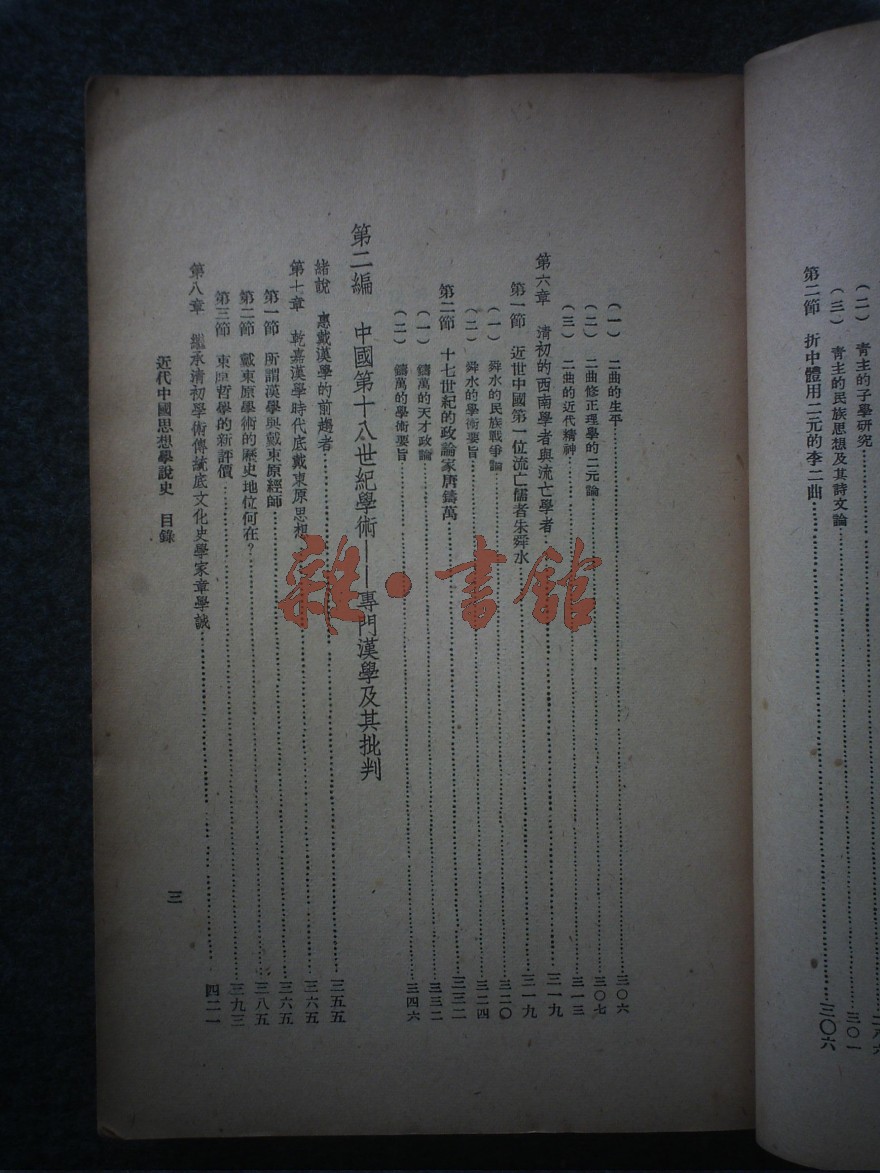 (二) 青主的子學研究
(三) 青主的民族思想及其詩文論 三〇一
第二節 折中體用二元的李二曲 三〇六
(一) 二曲的生平 三〇六
(二) 二曲修正理學的二元論 三〇七
(三) 二曲的近代精神 三一三
第六章 清初的西南學者與流亡學者 三一九
第一節 近世中國第一位流亡儒者朱舜水 三一九
(一) 舜水的民族戰爭論 三二〇
(二) 舜水的學術要旨 三二四
第二節 十七世紀的政論家唐鑄萬 三三二
(一) 鑄萬的天才政論 三三二
(二) 鑄萬的學術要旨 三四六
第二編 中國第十八世紀學術——專門漢學及其批判
緒說 惠戴漢學的前趨者 三五五
第七章 乾嘉漢學時代底戴東原思想 三六五
第一節 所謂漢學與戴東原經師 三六五
第二節 戴東原學術的歷史地位何在? 三八五
第三節 東原哲學的新評價 三九三
第八章 繼承清初學術傳統底文化史學家章學誠 四二一
近代中國思想學說史 目錄
三
雜·書館